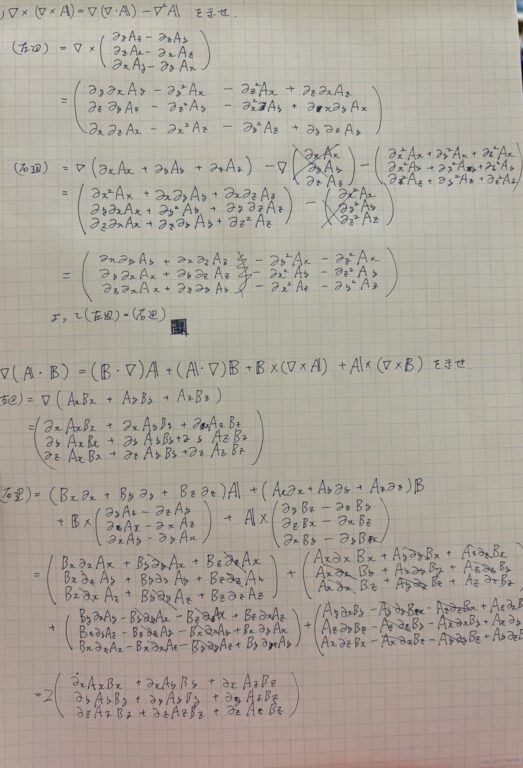 ) ∇×(∇×A) = ∇(∇·A) - ∇²A を示せ.
(左辺) = ∇×( ∂yAz - ∂zAy
∂zAx - ∂xAz
∂xAy - ∂yAx )
= ( ∂y∂xAy - ∂y²Ax - ∂z²Ax + ∂z∂xAz
∂z∂yAz - ∂z²Ay - ∂x²Ay + ∂x∂yAx
∂x∂zAx - ∂x²Az - ∂y²Az + ∂y∂zAy )
(右辺) = ∇(∂xAx + ∂yAy + ∂zAz) - ( ∂x²Ax + ∂y²Ax + ∂z²Ax
∂x²Ay + ∂y²Ay + ∂z²Ay
∂x²Az + ∂y²Az + ∂z²Az )
= ( ∂x²Ax + ∂x∂yAy + ∂x∂zAz
∂y∂xAx + ∂y²Ay + ∂y∂zAz
∂z∂xAx + ∂z∂yAy + ∂z²Az ) -
= ( ∂x∂yAy + ∂x∂zAz - ∂y²Ax - ∂z²Ax
∂y∂xAx + ∂y∂zAz - ∂x²Ay - ∂z²Ay
∂z∂xAx + ∂z∂yAy - ∂x²Az - ∂y²Az )
よって(左辺)=(右辺)
∇(A·B) = (B·∇)A + (A·∇)B + B×(∇×A) + A×(∇×B) を示せ.
左辺) = ∇(AxBx + AyBy + AzBz)
= ( ∂xAxBx + ∂xAyBy + ∂xAzBz
∂yAxBx + ∂yAyBy + ∂yAzBz
∂zAxBx + ∂zAyBy + ∂zAzBz )
(右辺) = (Bx∂x + By∂y + Bz∂z)A + (Ax∂x + Ay∂y + Az∂z)B
+ B×( ∂yAz - ∂zAy
∂zAx - ∂xAz
∂xAy - ∂yAx ) + A×( ∂yBz - ∂zBy
∂zBx - ∂xBz
∂xBy - ∂yBx )
= ( Bx∂xAx + By∂yAx + Bz∂zAx
Bx∂xAy + By∂yAy + Bz∂zAy
Bx∂xAz + By∂yAz + Bz∂zAz ) + ( Ax∂xBx + Ay∂yBx + Az∂zBx
Ax∂xBy + Ay∂yBy + Az∂zBy
Ax∂xBz + Ay∂yBz + Az∂zBz
+ ( By∂xAy - By∂yAx - Bz∂zAx + Bz∂xAz
Bz∂yAz - Bz∂zAy - Bx∂xAy + Bx∂yAx
Bx∂zAx - Bx∂xAz - By∂yAz + By∂zAy ) + ( Ay∂xBy - Ay∂yBx - Az∂zBx + Az∂x
Az∂yBz - Az∂zBy - Ax∂xBy + Ax∂y
Ax∂zBx - Ax∂xBz - Ay∂yBz + Ay∂z
= 2( ∂xAxBx + ∂xAyBy + ∂xAzBz
∂yAzBz
∂zAzBz )